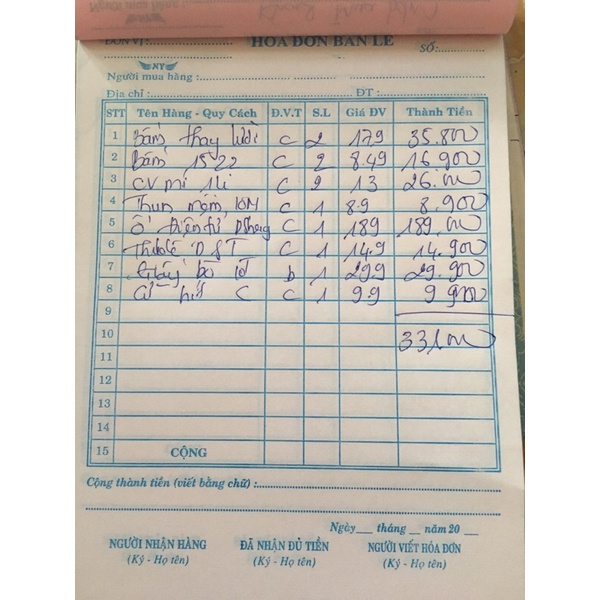 HÓA ĐƠN BÁN LẺ
ĐƠN VỊ : SỐ:
NY
Người mua hàng :
Địa chỉ : ĐT :
STT Tên Hàng - Quy Cách Đ.V.T S.L Giá ĐV Thành Tiền
1 Bấm thay lưỡi C 2 179 35.800
2 Bấm 1522 C 2 8.49 16.900
3 CV mí 1li C 2 13 26.000
4 Thun 10M C 1 8.9 8.900
5 Ổ điện tử C 1 189 189.000
6 Thước D ST C 1 14.9 14.900
7 bò b 1 29.9 29.900
8 C C 1 9.9 9 900
9
10 331.000
11
12
13
14
15 CỘNG
Cộng thành tiền (viết bằng chữ) :
Ngày tháng năm 20
NGƯỜI NHẬN HÀNG ĐÃ NHẬN ĐỦ TIỀN NGƯỜI VIẾT HÓA ĐƠN
(Ký - Họ tên) (Ký - Họ tên) (Ký - Họ tên)